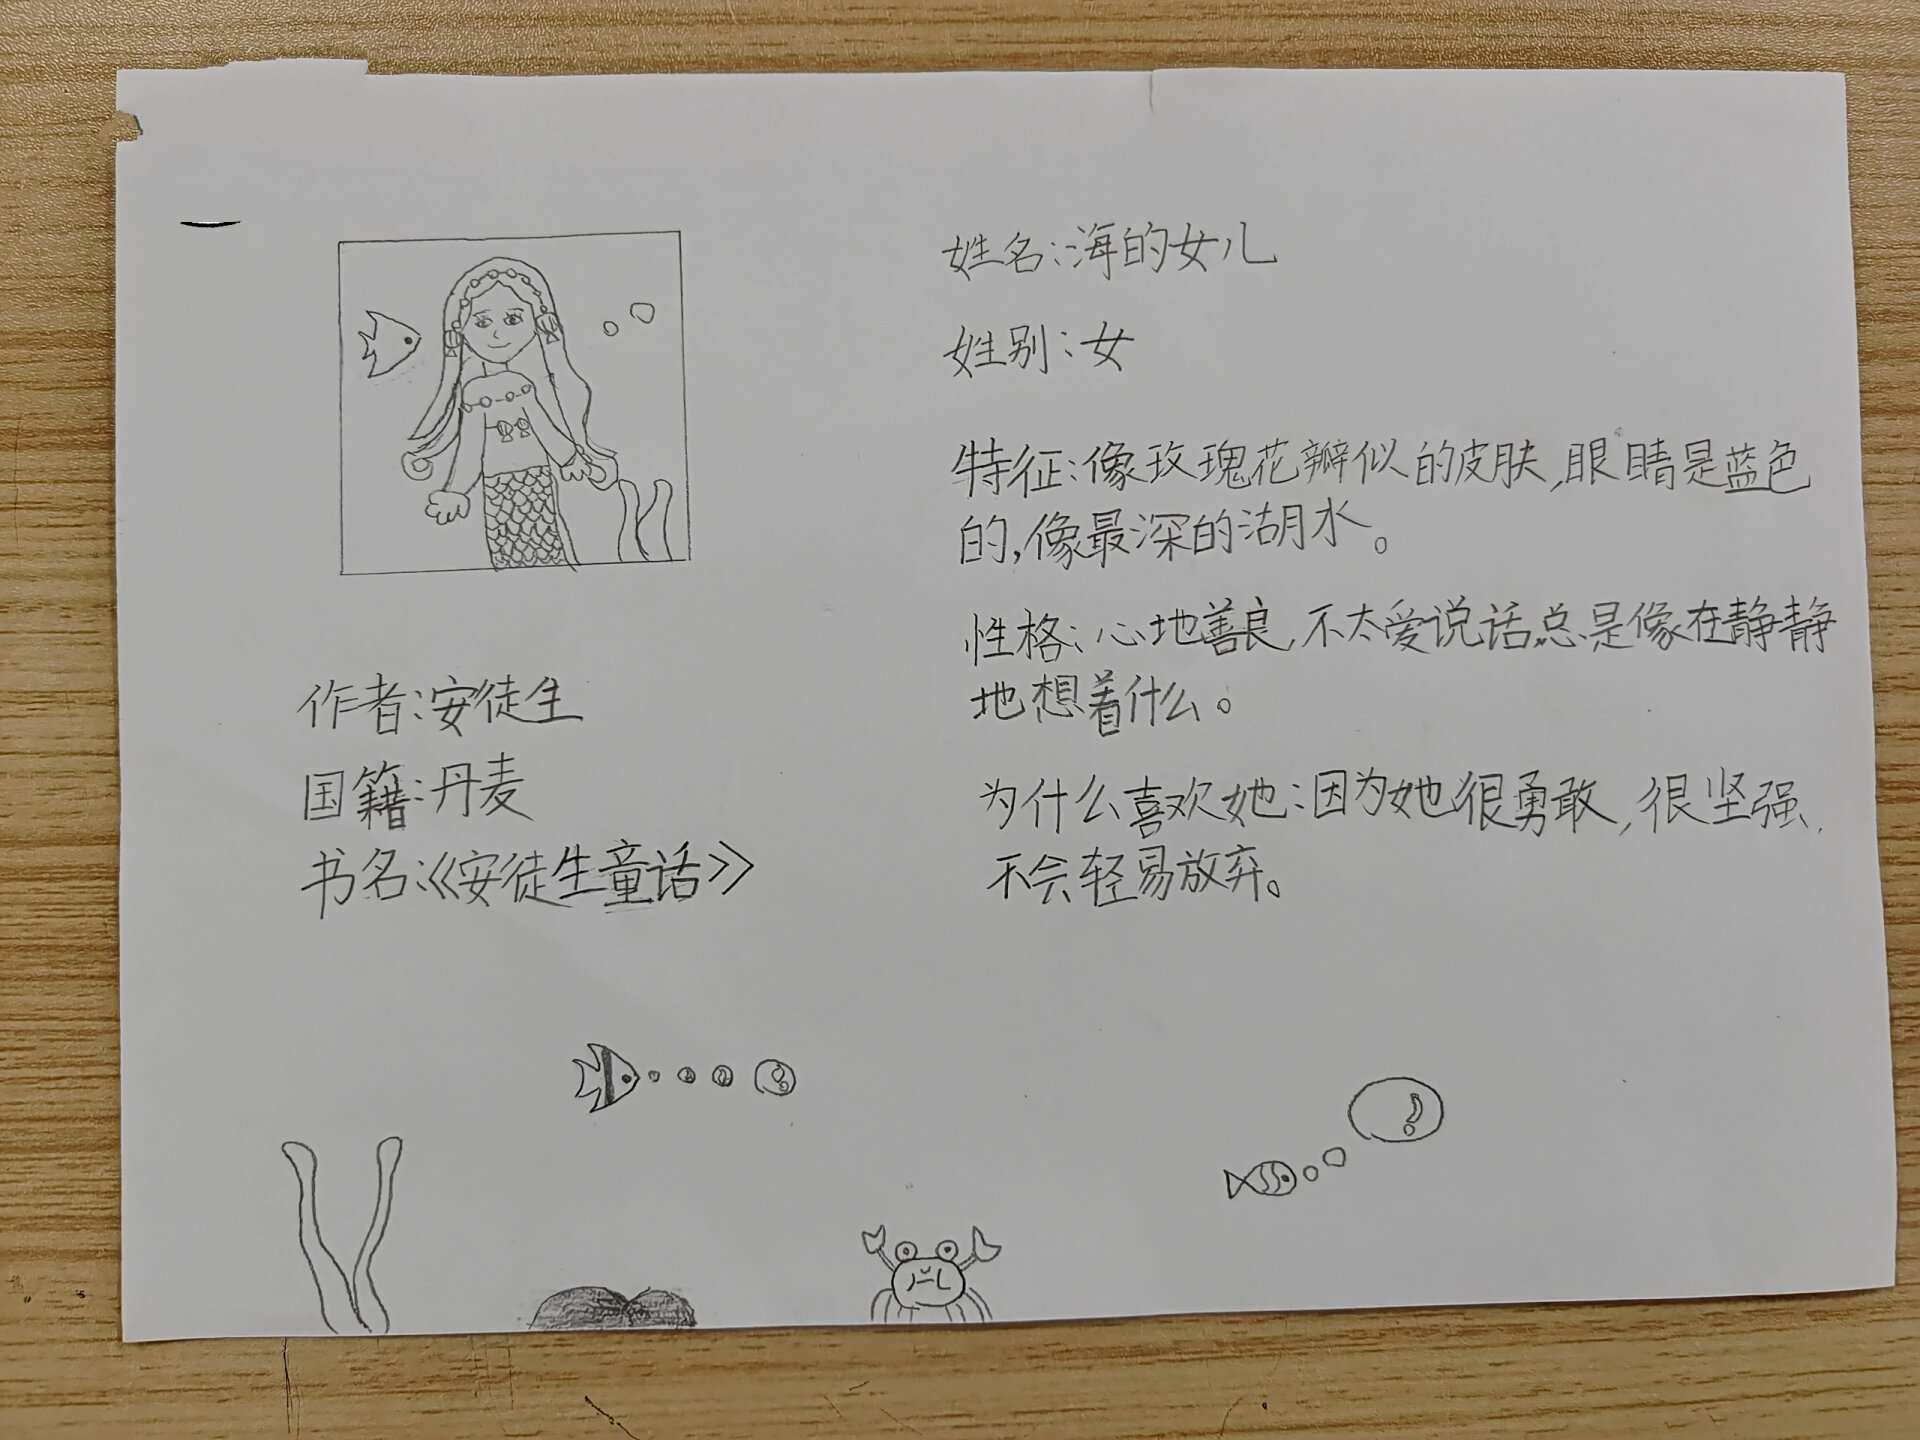 姓名:海的女儿
姓别:女
特征:像玫瑰花瓣似的皮肤,眼睛是蓝色
的,像最深的湖水。
性格:心地善良,不太爱说话.总是像在静静
地想着什么。
为什么喜欢她:因为她很勇敢,很坚强,
不会轻易放弃。
作者:安徒生
国籍:丹麦
书名:《安徒生童话》